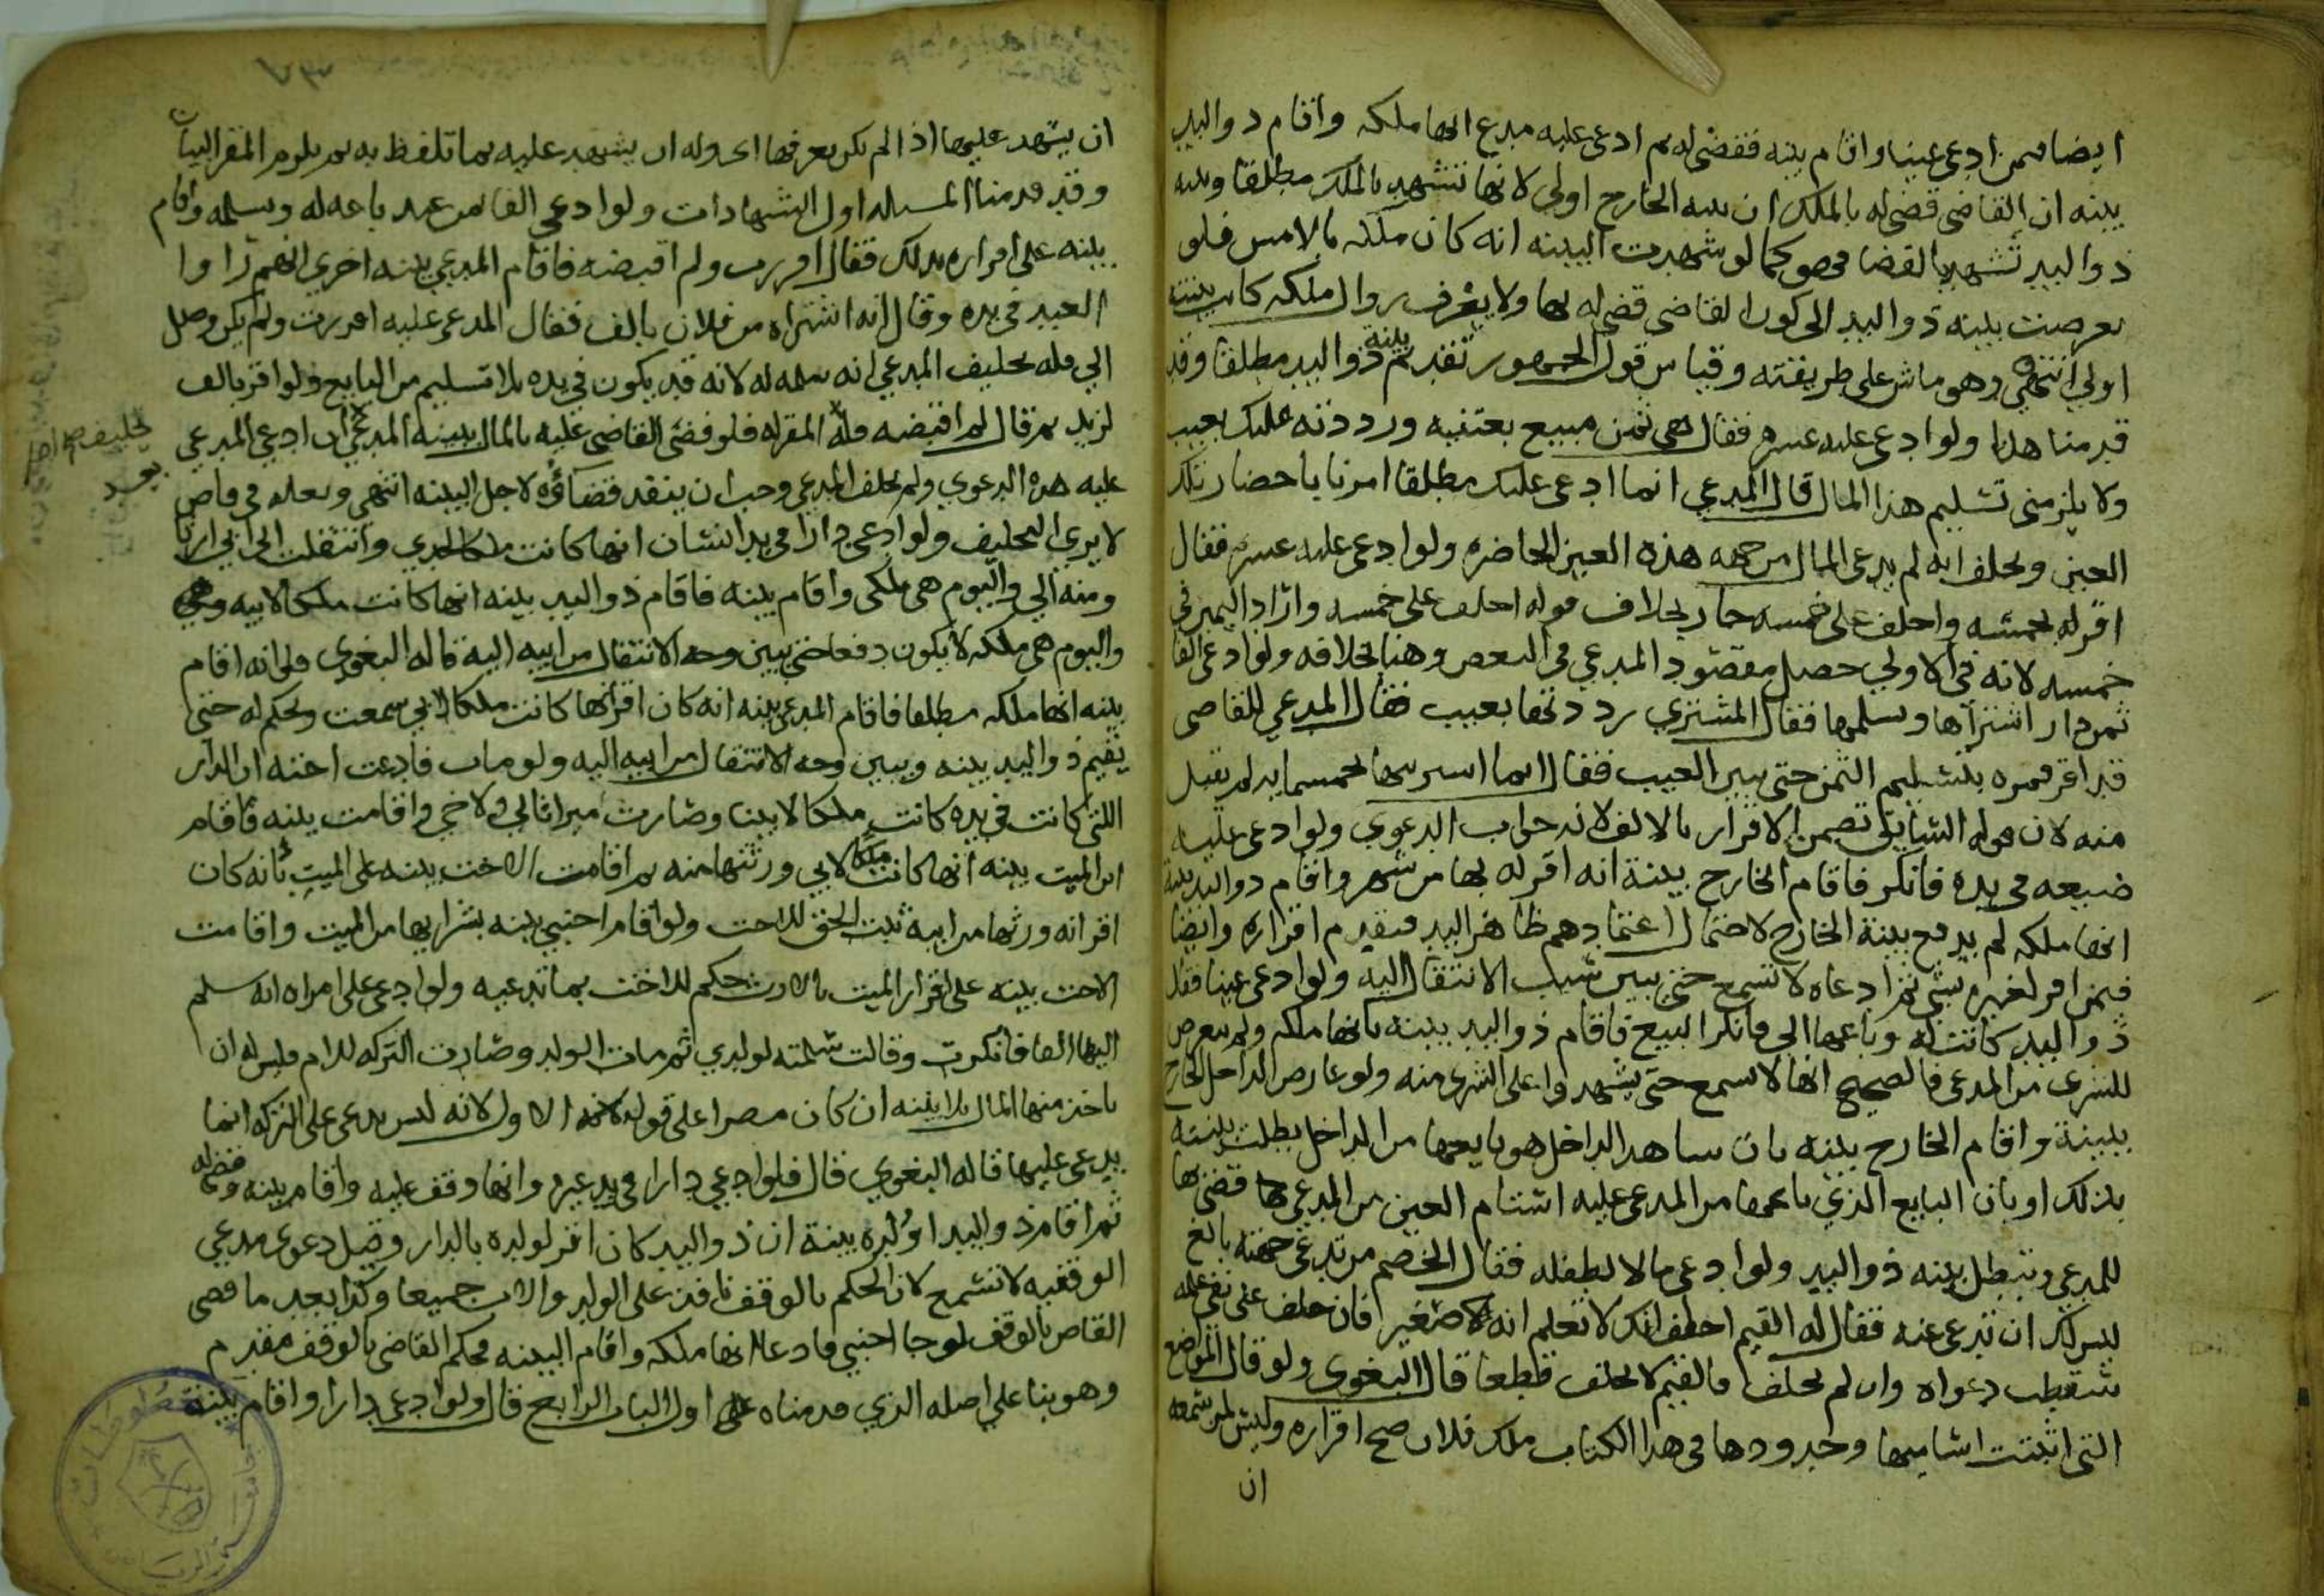 ايضا فمن ادعى عينا واقام بينه فقضى له ثم ادعى عليه مدع انها ملكه واقام ذو اليد
بينه ان القاضي قضى له بالملك ان بينه الخارج اولى لانها تشهد بالملك مطلقا وبينه
ذو اليد تشهد بالقضا فهو كما لو شهدت البينه انه كان ملكه بالامس فلو
تعرضت بينه ذو اليد الى كون القاضي قضى له بها ولا يعرف زوال ملكه كانت بينته
اولى انتهى وهو ماش على طريقته وقياس قول الجمهور تقديم بينة ذو اليد مطلقا وقد
قدمنا هذا ولو ادعى عليه عشره فقال هي ثمن مبيع بعتنيه ورددته عليك بعيب
ولا يلزمني تسليم هذا المال قال المدعي انما ادعى عليك مطلقا امرنا باحضار تلك
العين وحلف انه لم يدعى المال من جهه هذه العين الحاضره ولو ادعى عليه عشره فقال
اقر له بخمسه واحلف على خمسه جاز بخلاف قوله احلف على خمسه واراد اليمين في
خمسه لانه في الاولى حصل مقصود المدعي في البعض وهنا بخلافه ولو ادعى الفا
ثمن دار اشتراها وسلمها فقال المشتري رددتها بعيب فقال المدعي للقاضي
قد اقر فمره بتسليم الثمن حتى يبين العيب فقال انما اشتريتها بخمسمايه لم يقبل
منه لان قوله السابق تضمن الاقرار بالالف لانه جواب الدعوي ولو ادعى عليه
ضيعه في يده فانكر فاقام الخارج بينة انه اقر له بها من شهر واقام ذو اليد بينة
انها ملكه لم يدفع بينة الخارج لاحتمال اعتمادهم ظاهر اليد فيقدم اقراره وايضا
فمن اقر لغيره بشي ثم ادعاه لا تسمع حتى يبين سبب الانتقال اليه ولو ادعى عينا فقال
ذو اليد كانت له وباعها الي فانكر البيع فاقام ذو اليد بينه بانها ملكه ولم يتعرض
للشرى من المدعي فالصحيح انها لا تسمع حتى يشهدوا على الشرى منه ولو عارض الداخل الخارج
ببينة واقام الخارج بينه بان شاهد الداخل هو بايعها من الداخل بطلت بينته
بذلك او بان البايع الذي باعها من المدعى عليه استام العين من المدعي بها قضى بها
للمدعي وتبطل بينه ذو اليد ولو ادعى مالا لطفله فقال الخصم من تدعي جهته بالغ
ليس لك ان تدعى عنه فقال له القيم احلف انك لا تعلم انه صغير فان حلف على نفي علمه
سقطت دعواه وان لم يحلف فالقيم لا يحلف قطعا قال البغوى ولو قال المواضع
التي اثبتت اساميها وحدودها في هذا الكتاب ملك فلان صح اقراره وليس لمن سمعه
ان
ان يشهد عليها اذا لم يكن يعرفها اي وله ان يشهد عليه بما تلفظ به ثم يلزم المقر البيان
وقد قدمنا المساله اول الشهادات ولو ادعى الفا من عبد باعه له وسلمه واقام
بينه على اقراره بذلك فقال اقررت ولم اقبضه فاقام المدعي بينه اخرى انهم راوا
العبد في يده وقال انه اشتراه من فلان بالف فقال المدعى عليه اقررت ولم يكن وصل
الي فله تحليف المدعي انه سلمه له لانه قد يكون في يده بلا تسليم من البايع ولو اقر بالف
لزيد ثم قال لم اقبضه فله المقر له فلو قضى القاضي عليه بالمال ببينة المدعي ان ادعى المدعي
تحليف
عليه هذه الدعوي ولم يحلف المدعي وجب ان ينفذ قضاؤه لاجل البينه انتهى ولعله في قاض
لا يرى التحليف ولو ادعى دارا في يد انسان انها كانت ملكا لجدي وانتقلت الى ابي ارثا
ومنه الي واليوم هي ملكي واقام بينه فاقام ذو اليد بينه انها كانت ملكا لابيه
واليوم هي ملكه لا يكون دفعا حتى يبين وجه الانتقال من ابيه اليه قاله البغوي ولو انه اقام
بينه انها ملكه مطلقا فاقام المدعي بينه انه كان اقر انها كانت ملكا لابي سمعت وحكم له حتى
يقيم ذو اليد بينه ويبين وجه الانتقال من ابيه اليه ولو مات فادعت اخته ان الدار
اللتي كانت في يده كانت ملكا لابينا وصارت ميراثا لي ولاخي واقامت بينه فاقام
ابن الميت بينه انها كانت ملكا لابي ورثتها منه ثم اقامت الاخت بينه على الميت بانه كان
اقر انه ورثها من ابيه ثبت الحق للاخت ولو اقام اجنبي بينه بشرايها من الميت واقامت
الاخت بينه على اقرار الميت بالارث حكم للاخت بما تدعيه ولو ادعى على امراه انه سلم
اليها الفا فانكرت وقالت سلمته لولدي ثم مات الولد وصارت التركه للام فليس له ان
ياخذ منها المال بلا بينه ان كان مصرا على قوله الاول لانه ليس يدعى على التركه انما
يدعى عليها قاله البغوي قال فلو ادعي دارا في يد غيره وانها وقف عليه واقام بينه وقضى له
ثم اقام ذو اليد او ولده بينة ان ذو اليد كان اقر لولده بالدار وقبل دعوى مدعي
الوقفيه لا تسمع لان الحكم بالوقف نافذ على الولد والاب جميعا وكذا بعد ما قضى
القاضي بالوقف لو جا اجنبي فادعا انها ملكه واقام البينه فحكم القاضي بالوقف مقدم
وهو بنا على اصله الذي قدمناه اول الباب الرابع قال ولو ادعى دارا واقام بينة